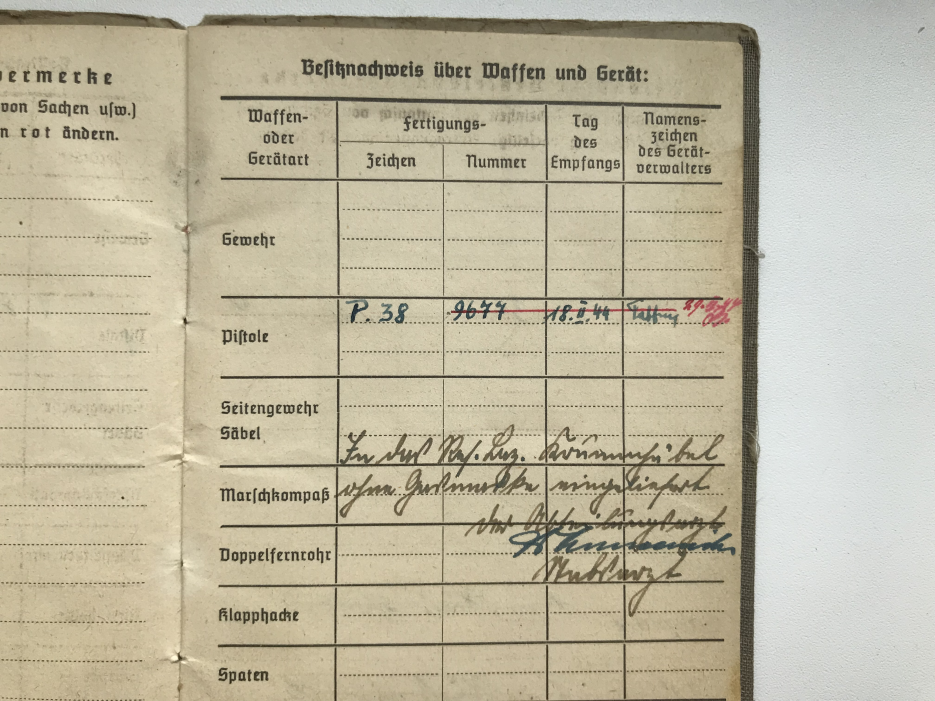 vermerke
von Sachen usw.)
n rot ändern.
Besitznachweis über Waffen und Gerät:
Waffen-
oder
Gerätart
Fertigungs-
Zeichen
Nummer
Tag
des
Empfangs
Namens-
zeichen
des Gerät-
verwalters
Gewehr
Pistole
P. 38 9677 18.II.44
Seitengewehr
Säbel
In das Res. Laz.
Marschkompaß
ohne Gasmaske eingeliefert
der Abteilungsarzt
Doppelfernrohr
Stabsarzt
Klapphacke
Spaten